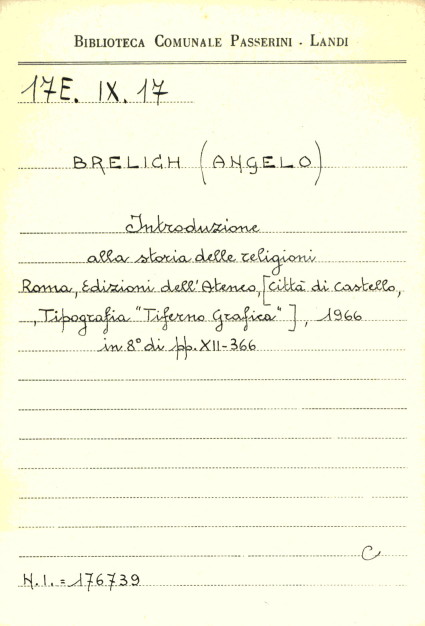 BIBLIOTECA COMUNALE PASSERINI - LANDI
17E. IX. 17
BRELICH (ANGELO)
Introduzione
alla storia delle religioni
Roma, Edizioni dell'Ateneo, [Città di Castello,
, Tipografia "Tiferno Grafica"], 1966
in 8° di pp. XII-366
C
N.I. = 176739